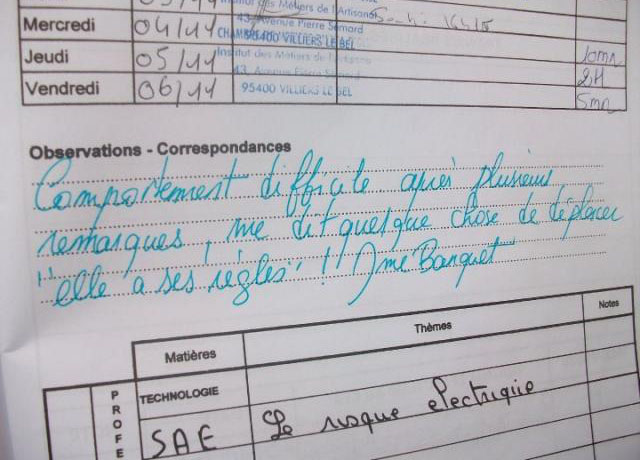 Institut des Métiers de l'Artisanat
Mercredi 04/11 43, Avenue Pierre Sémard
95400 VILLIERS LE BEL
Jeudi 05/11 Institut des Métiers de 10mn
43, Avenue Pierre Sémard 2H
Vendredi 06/11 95400 VILLIERS LE BEL 5mn
Observations - Correspondances
Comportement difficile après plusieurs
remarques, me dit quelque chose de déplacer
"elle a ses règles" ! Mme Banquet
Matières Thèmes Notes
PROFE
TECHNOLOGIE
SAE Le risque electrique